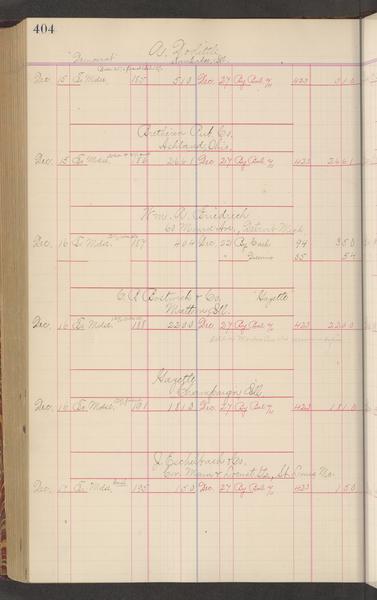 404
"Democrat" A. Dolittle
Dec. 15 To Mdse. 185 5 1 0 Dec. 27 By Bal. 423 5 1 0
Brethren Pub Co.
Ashland, Ohio.
Dec. 15 To Mdse. 186 26 6 1 Dec. 27 By Bal. 423 26 6 1
Wm. A. Friedrich
Ave., Detroit Mich
Dec. 16 To Mdse. 187 4 0 4 Dec. 22 By Cash 94 3 5 0
" " 35 5 4
C. A. Bostwick & Co. "Gazette"
Mattoon, Ill.
Dec. 16 To Mdse. 188 22 0 0 Dec. 27 By Bal. 423 22 0 0
Gazette
Champaign Ill
Dec. 16 To Mdse. 191 18 1 0 Dec. 27 By Bal. 423 18 1 0
J. Eschelbach & Co.
Cor. Main & Locust Sts., St. Louis Mo.
Dec. 17 To Mdse. 195 1 5 0 Dec. 27 By Bal. 423 1 5 0